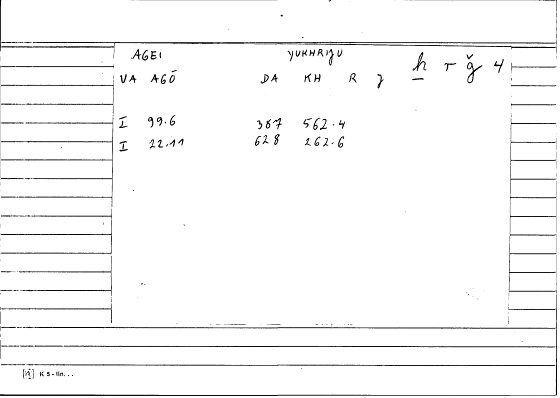 AGEI YUKHRIJU
h r ğ 4
VA AGŌ DA KH R J
I 99.6 387 562.4
I 22.11 628 262.6
K 5 - lin...